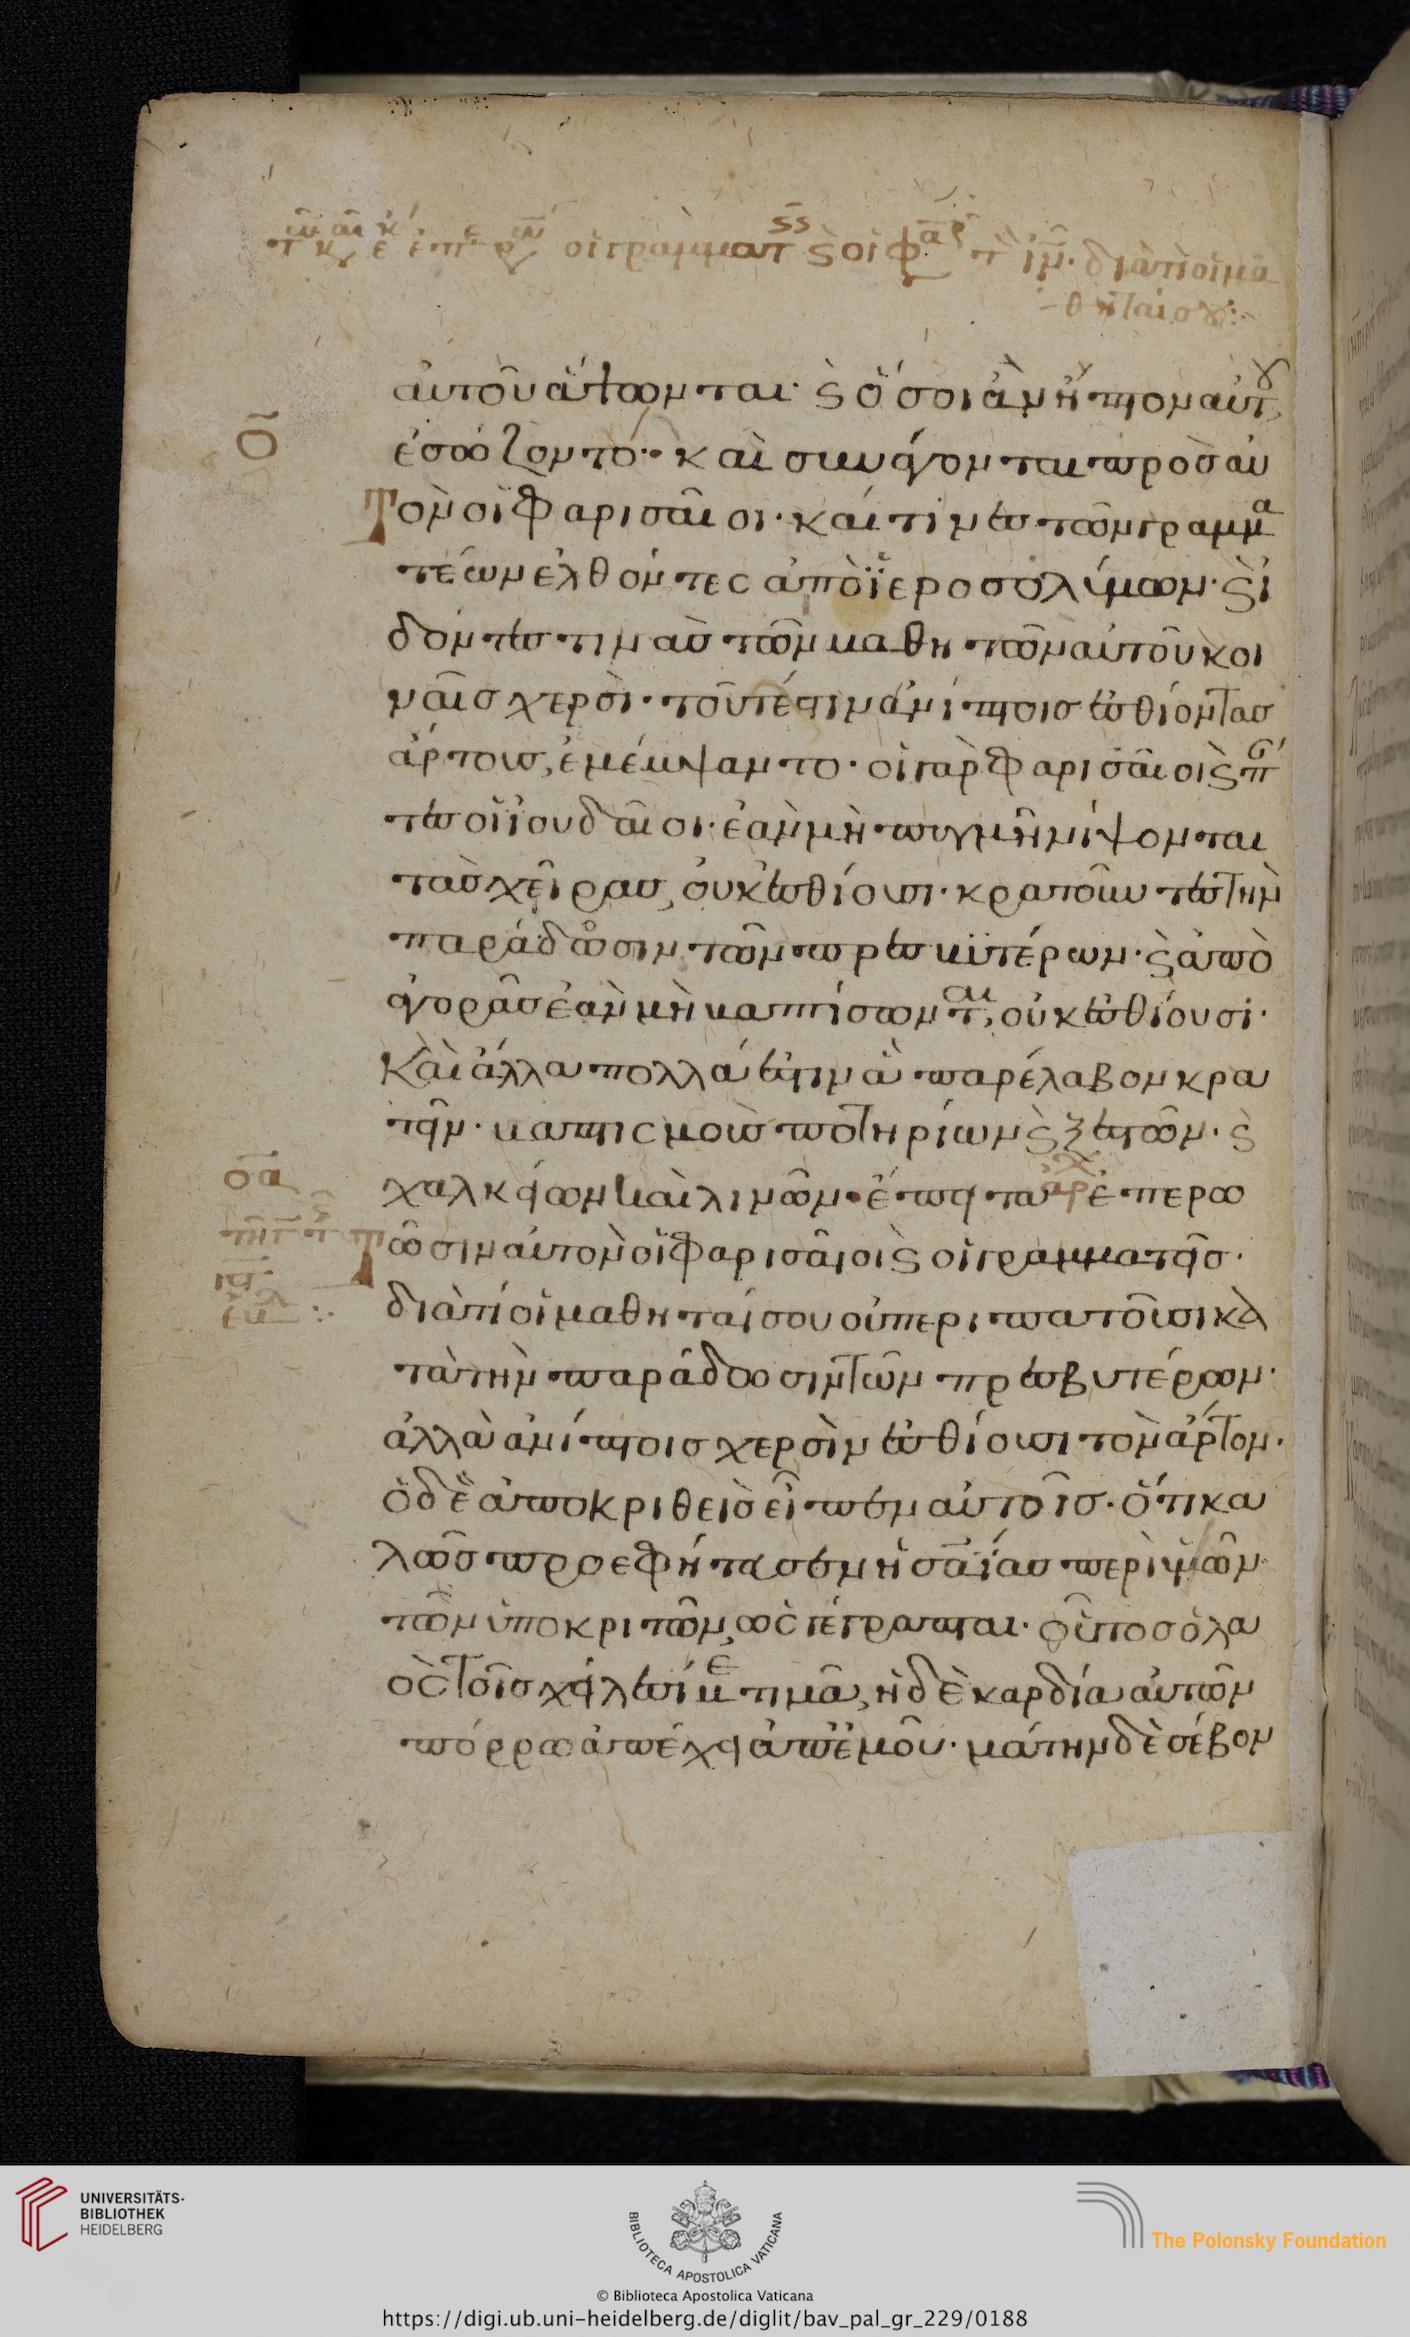 οἱ γραμματ ϛ οἱ φαρ τ ἰῦ. διατὶ οἱ μα
θηταί σου:
αὐτοῦ ἅψωνται· ϛ ὅσοι ἂν ἥπτον αὐτου
ο
ἐσώζοντο·· καὶ συνάγονται πρὸς αὐ
τὸν οἱ φαρισαῖοι· καί τινες τῶν γραμμα
τέων ἐλθόντες ἀπὸ ἱεροσολύμων· ϛ ἰ
δόντες τινὰς τῶν μαθητῶν αὐτοῦ κοι
ναῖς χερσὶ· τοῦτέστιν ἀνίπτοις ἐσθίοντας
ἄρτους, ἐμέμψαντο· οἱ γὰρ φαρισαῖοι ϛ πάν
τες οἱ ἰουδαῖοι· ἐὰν μὴ πυγμῇ νίψονται
τὰς χεῖρας, οὐκ ἐσθίουσι· κρατοῦντες τὴν
παράδωσιν τῶν πρεσβυτέρων· ϛ ἀπὸ
ἀγορᾶς ἐὰν μὴ βαπτίσωνται, οὐκ ἐσθίουσι·
καὶ ἄλλα πολλά ἐστιν ἃ παρέλαβον κρα
τεῖν· βαπτισμοὺς ποτηρίων ϛ ξεστῶν· ϛ
οα
χαλκείων καὶ λινῶν· ἔπειτα ἀρχ ἐπερω
τῶσιν αὐτὸν οἱ φαρισαῖοι ϛ οἱ γραμματεῖς·
διὰτί οἱ μαθηταί σου οὐ περιπατοῦσι κα
τὰ τὴν παράδοσιν τῶν πρεσβυτέρων·
ἀλλὰ ἀνίπτοις χερσὶν ἐσθίουσι τὸν ἄρτον·
ὁ δὲ ἀποκριθεὶς εἶπεν αὐτοῖς· ὅτι κα
λῶς προεφήτευσεν ἡσαΐας περὶ ὑμῶν
τῶν ὑποκριτῶν, ὡς γέγραπται· οὗτος ὁ λα
ὸς τοῖς χείλεσί με τιμᾶ, ἡ δὲ καρδία αὐτῶν
πόρρω ἀπέχει ἀπ ἐμοῦ· μάτην δὲ σέβον
UNIVERSITÄTS-
BIBLIOTHEK
HEIDELBERG
BIBLIOTHECA APOSTOLICA VATICANA
The Polonsky Foundation
© Biblioteca Apostolica Vaticana
https://digi.ub.uni-heidelberg.de/diglit/bav_pal_gr_229/0188